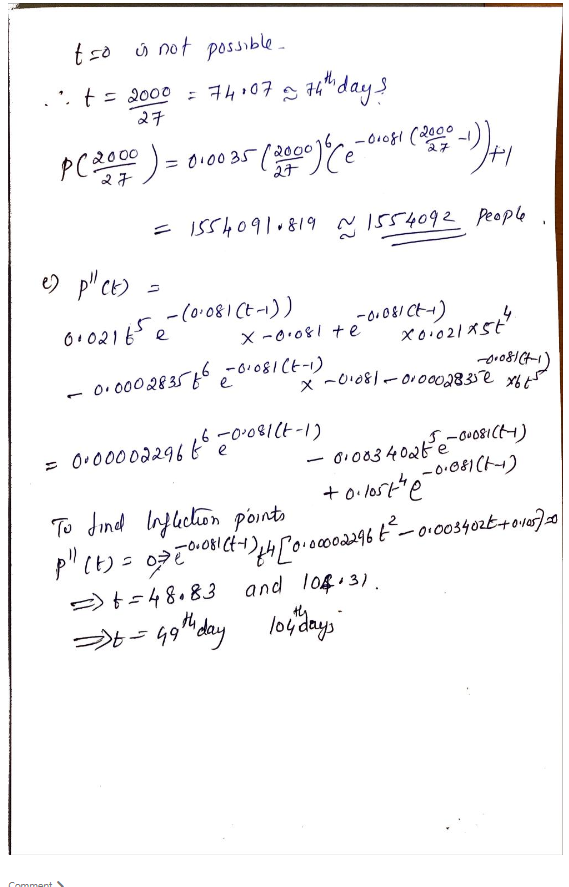 t=0 is not possible.
∴ t = 2000/27 = 74.07 ≈ 74th days
P(2000/27) = 0.0035 (2000/27)^6 (e^-0.081 (2000/27 -1)) +1
= 1554091.819 ≈ 1554092 people.
e) p''(t) =
0.021 t^5 e^-(0.081(t-1)) x -0.081 + e^-0.081(t-1) x 0.021 x 5t^4
- 0.0002835 t^6 e^-0.081(t-1) x -0.081 - 0.0002835 e^-0.081(t-1) x6 t^5
= 0.00002296 t^6 e^-0.081(t-1) - 0.003402 t^5 e^-0.081(t-1)
+ 0.105 t^4 e^-0.081(t-1)
To find Inflection points
p''(t) = 0 => e^-0.081(t-1) t^4 [0.00002296 t^2 - 0.003402t + 0.105] = 0
=> t = 48.83 and 104.31.
=> t = 49th day 104th days
Comment >